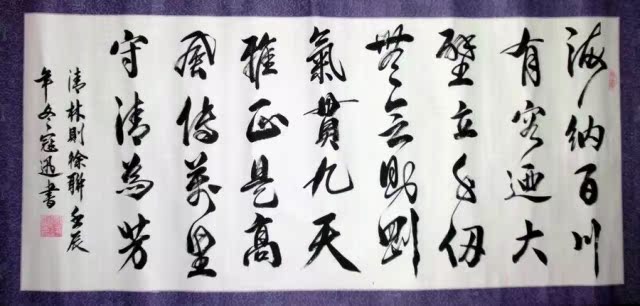 海納百川
有容迺大
壁立千仞
無欲則剛
氣貫九天
雅正是高
風傳萬里
守清為芳
清林則徐聯壬辰
年冬冠書